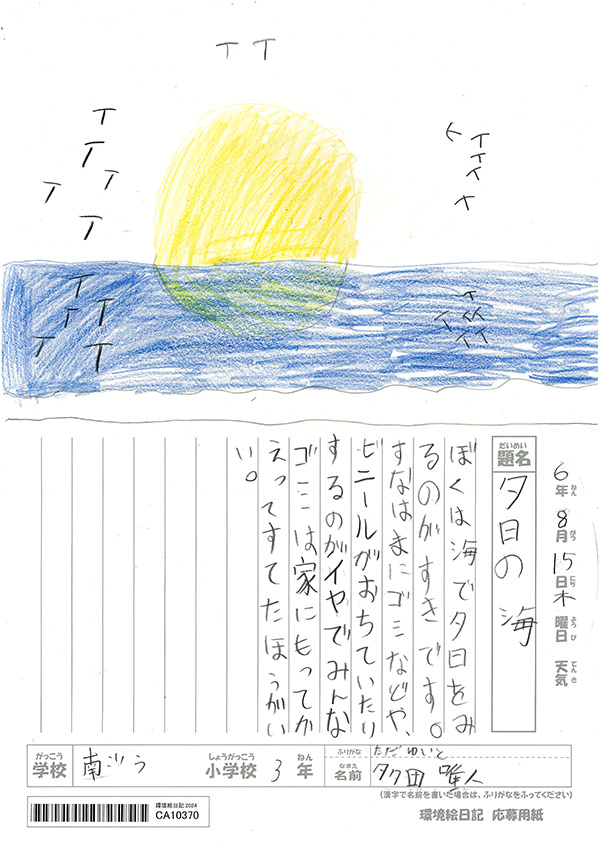 6年 8月 15日 木曜日 天気
ねん がつ にち ようび てんき
だいめい
題名 夕日の海
ぼくは海で夕日をみ
るのがすきです。
すなはまにゴミなどや、
ビニールがおちていたり
するのがイヤでみんな
ゴミは家にもってか
えってすてたほうがい
い。
がっこう しょうがっこう ねん ふりがな ただ ゆいと
学校 南 小学校 3年 なまえ 名前 多田 唯人
(漢字で名前を書いた場合は、ふりがなをふってください)
環境絵日記 2024
CA10370
環境絵日記 応募用紙